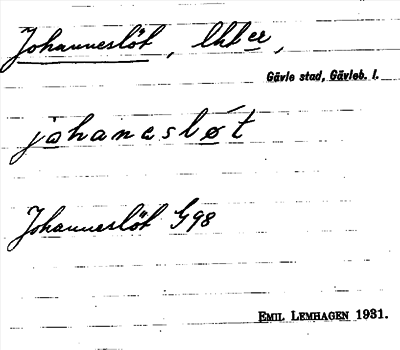 Johanneslöt, lht er,
Gävle stad, Gävleb. l.
johaneslöt
Johanneslöt G98
EMIL LEMHAGEN 1931.